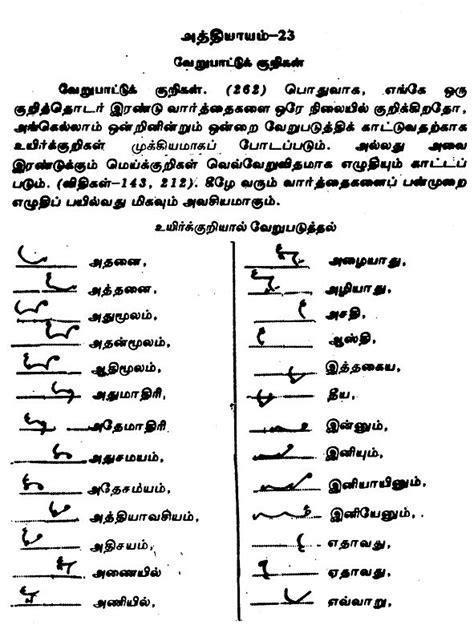 அத்தியாயம்–23
வேறுபாட்டுக் குறிகள்
வேறுபாட்டுக் குறிகள். (262) பொதுவாக, எங்கே ஒரு
குறித்தொடர் இரண்டு வார்த்தைகளை ஒரே நிலையில் குறிக்கிறதோ,
அங்கெல்லாம் ஒன்றினின்றும் ஒன்றை வேறுபடுத்திக் காட்டுவதற்காக
உயிர்க்குறிகள் முக்கியமாகப் போடப்படும். அல்லது அவை
இரண்டுக்கும் மெய்க்குறிகள் வெவ்வேறுவிதமாக எழுதியும் காட்டப்
படும். (விதிகள்–143, 212). கீழே வரும் வார்த்தைகளைப் பன்முறை
எழுதிப் பயில்வது மிகவும் அவசியமாகும்.
உயிர்க்குறியால் வேறுபடுத்தல்
அதனை,
அத்தனை,
அதுமூலம்,
அதன்மூலம்,
ஆதிமூலம்,
அதுமாதிரி
அதேமாதிரி
அதுசமயம்,
அதேசமயம்,
அத்தியாவசியம்,
அதிசயம்,
அணையில்
அணியில்,
அழையாது,
அழியாது,
அசதி,
ஆஸ்தி,
இத்தகைய,
தீய,
இன்னும்,
இனியும்,
இனியாயினும்,
இனியேனும்,
எதாவது,
ஏதாவது,
எவ்வாறு,